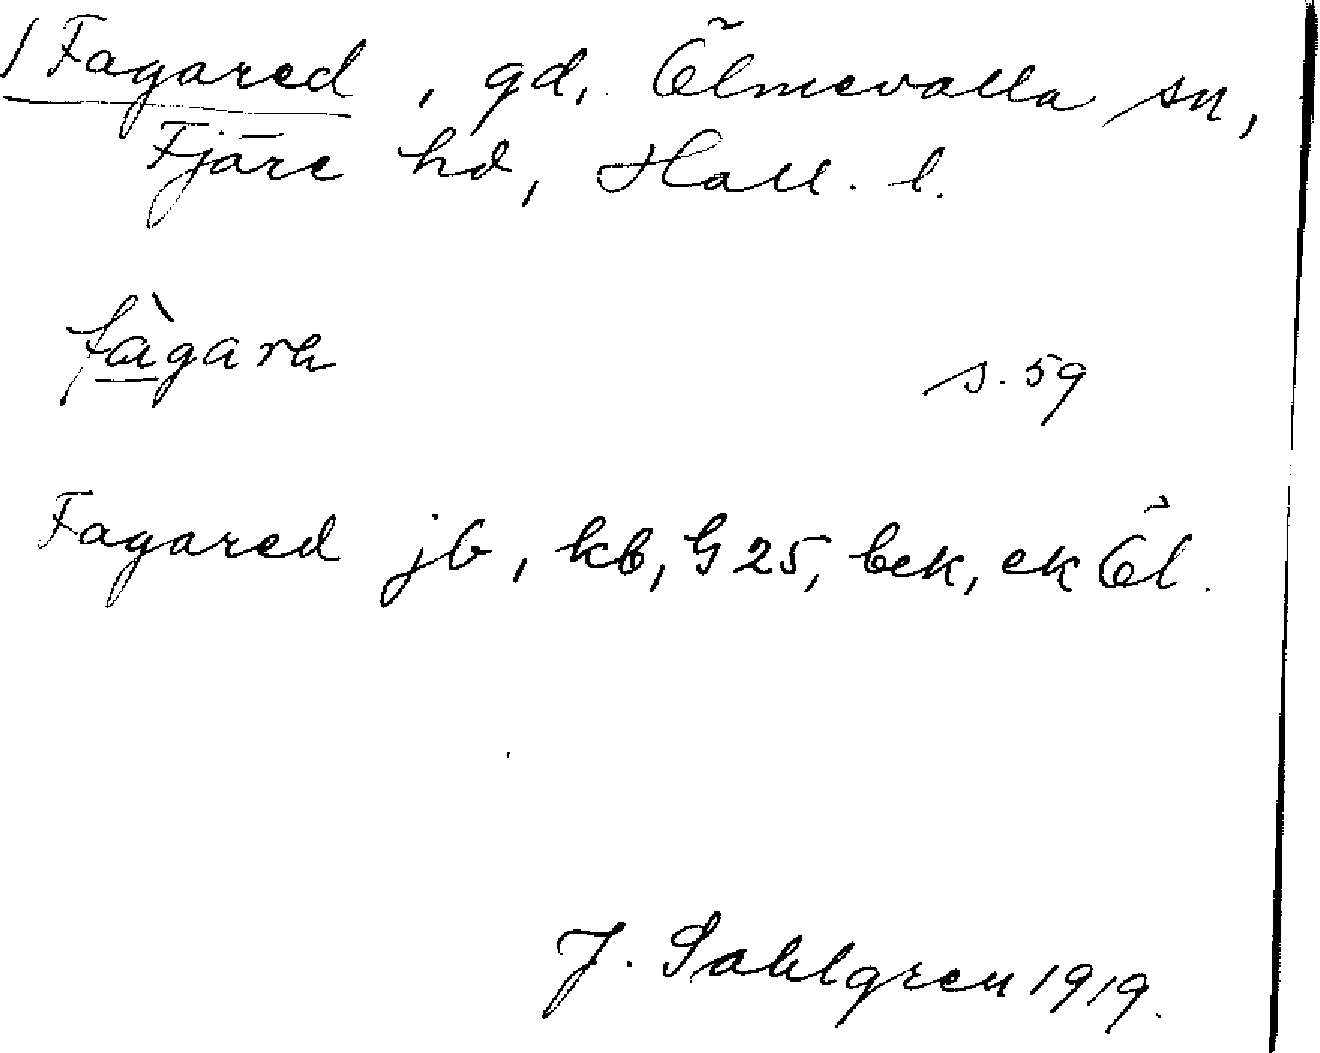 1 Fagared, gd, Ölmevalla sn,
Fjäre hd, Hall. l.
fàgara
s. 59
Fagared jb, kb, G 25, bek, ek Öl.
J. Sahlgren 1919.